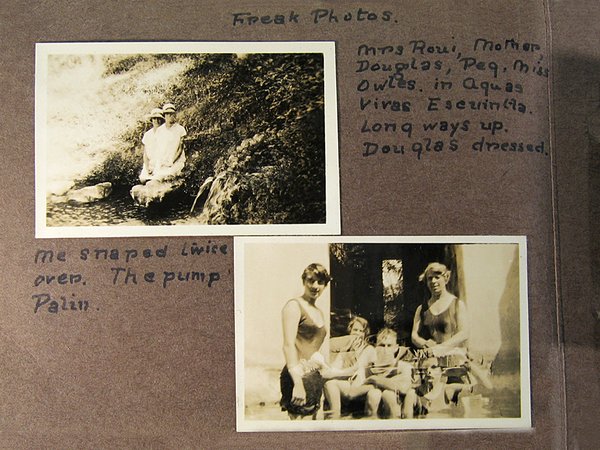 Freak Photos.
Mrs Roui, Mother,
Douglas, Peg, Miss
Owles. in Aquas
Vivas Escuintla.
Long ways up.
Douglas dressed.
me snaped twice
over. The pump
Palin.